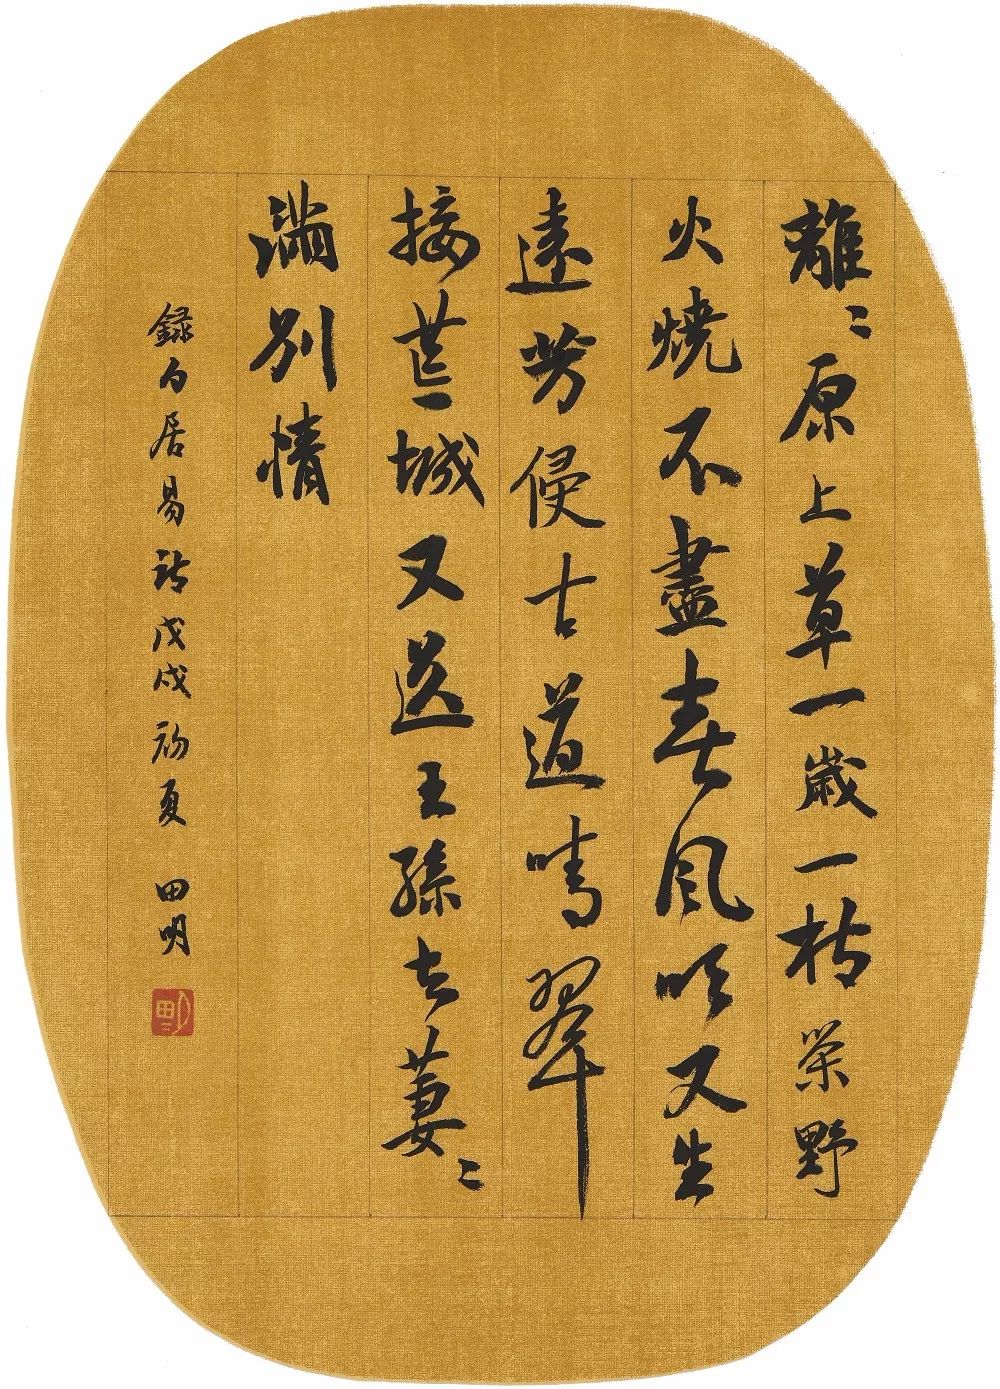 離〻原上草一歲一枯榮野
火燒不盡春風吹又生
遠芳侵古道晴翠
接荒城又送王孫去萋〻
滿別情
錄白居易詩戊戌初夏 田明